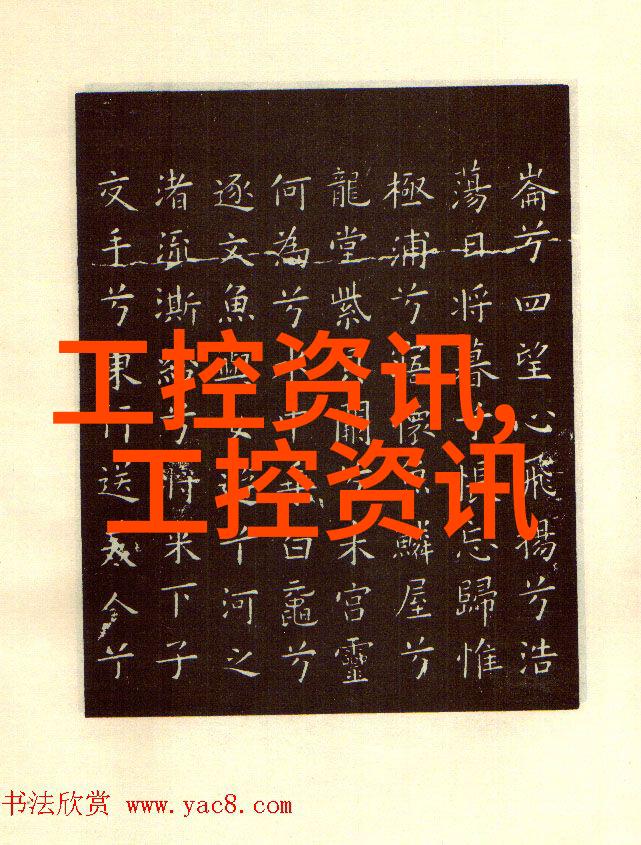 崙兮四望心飛揚兮浩
蕩日将暮兮悵忘歸惟
極浦兮寤懷魚鱗屋兮
龍堂紫貝闕兮朱宮靈
何為兮水中乗白黿兮
逐文魚與女遊兮河之
渚流澌紛兮将来下子
交手兮東行送美人兮
工控资讯,
工控资讯
书法欣赏 www.yac8.com